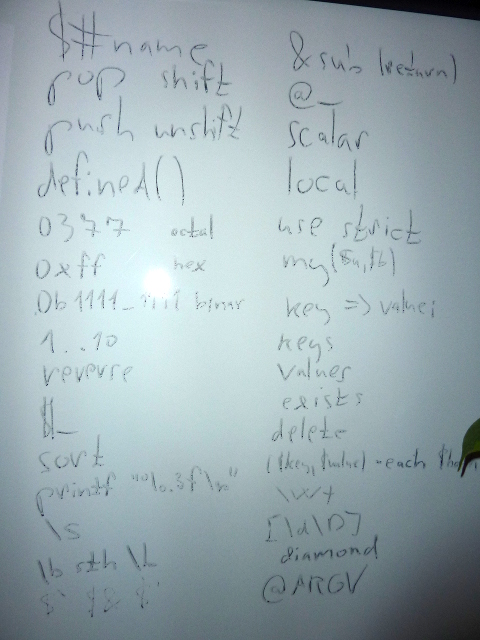 $#name
pop shift
push unshift
defined()
0377 octal
0xff hex
0b1111_1111 binar
1..10
reverse
$_
sort
printf "%.3f\n"
\s
\b sth \b
$` $& $'
&sub (return)
@_
scalar
local
use strict
my($a,$b)
key => value;
keys
values
exists
delete
($key,$value) -each
\w+
[\d\D]
diamond
@ARGV